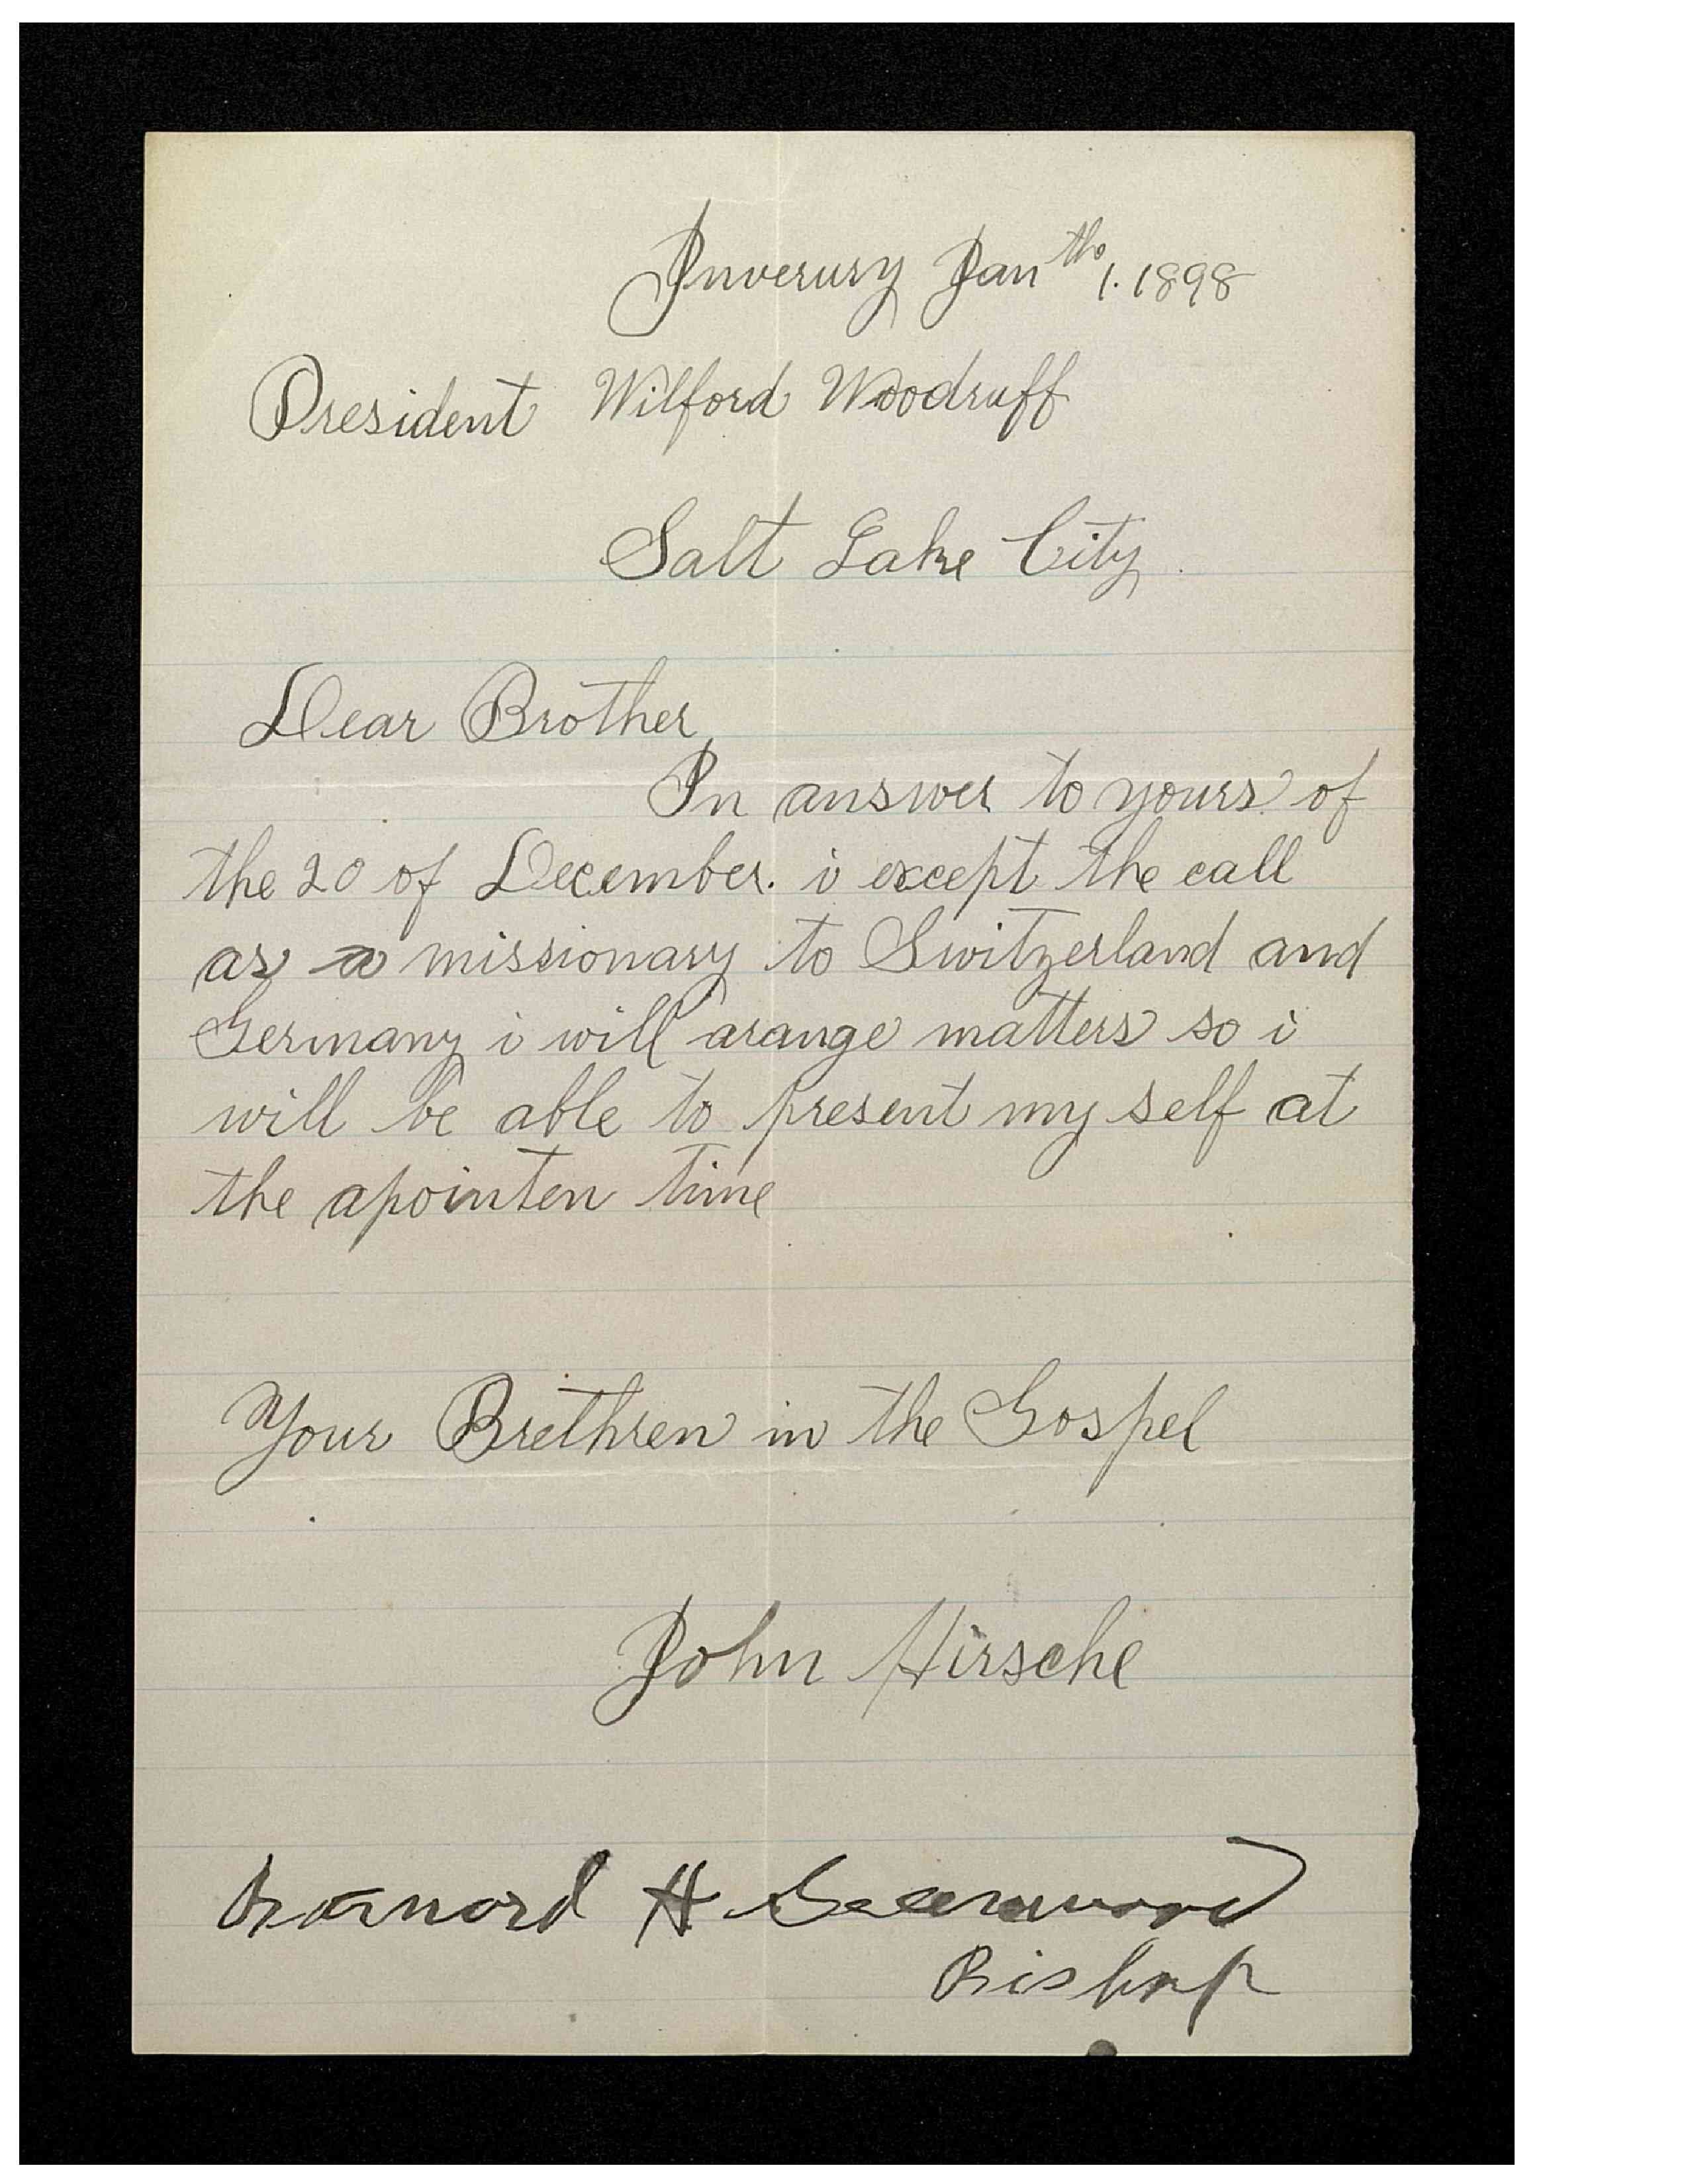 Inverury Jan th 1. 1898
President Wilford Woodruff
Salt Lake City.
Dear Brother
In answer to yours of
the 20 of December. i except the call
as a missionary to Switzerland and
Germany i will arange matters so i
will be able to present my self at
the apointen time
Your Brethren in the Gospel
John Hirsche
H
Bishop